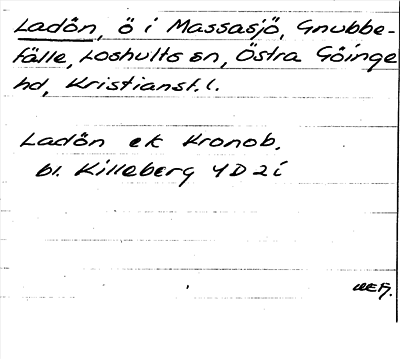 Ladön, ö i Massasjö, Gnubbe-
fälle, Loshults sn, Östra Göinge
hd, Kristianst. l.
Ladön ek Kronob.
bl. Killeberg 4D2i